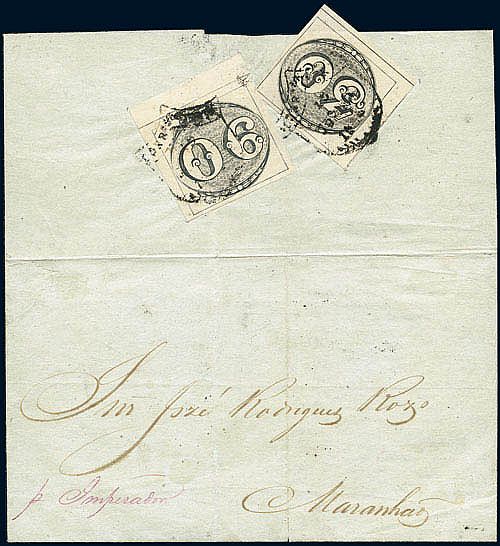 60
60
Snr José Rodrigues Roxo
p Imperador
Maranhaõ